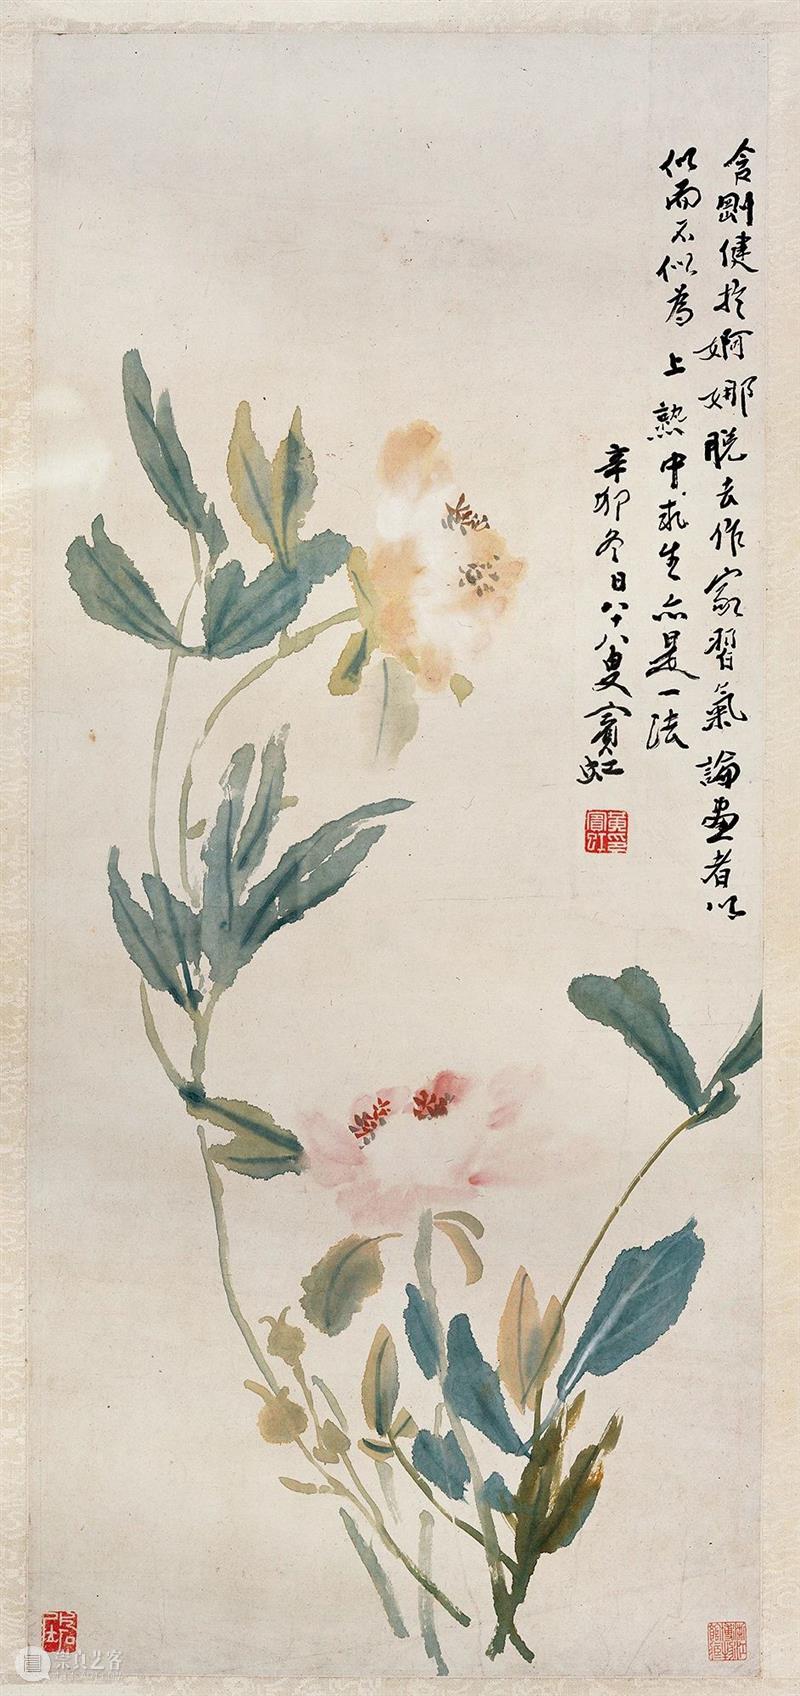 含剛健於婀娜脫去作家習氣論畫者以
似而不似為上熟中求生亦是一法
辛卯冬日八十八叟賓虹
黃印賓虹
崇真艺客